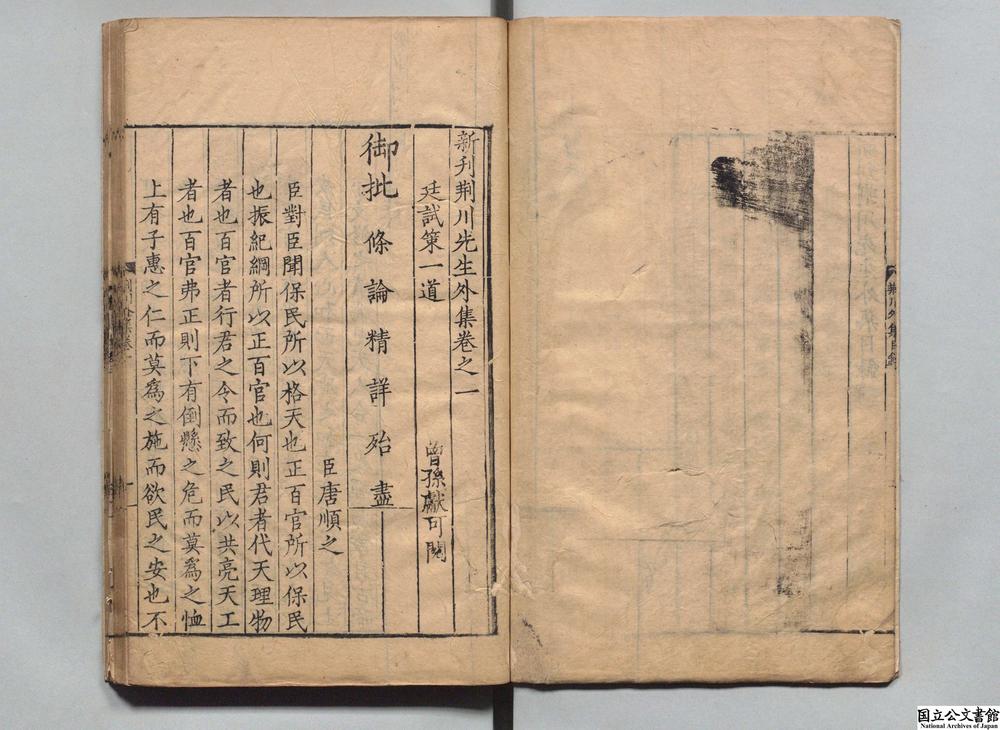 荆川外集目錄
新刋荆川先生外集卷之一
廷試策一道
曾孫獻可閱
御批 條論精詳殆盡
臣唐順之
臣對臣聞保民所以格天也正百官所以保民
也振紀綱所以正百官也何則君者代天理物
者也百官者行君之令而致之民以共亮天工
者也百官弗正則下有倒懸之危而莫爲之恤
上有子惠之仁而莫爲之施而欲民之安也不
国立公文書館
National Archives of Japan